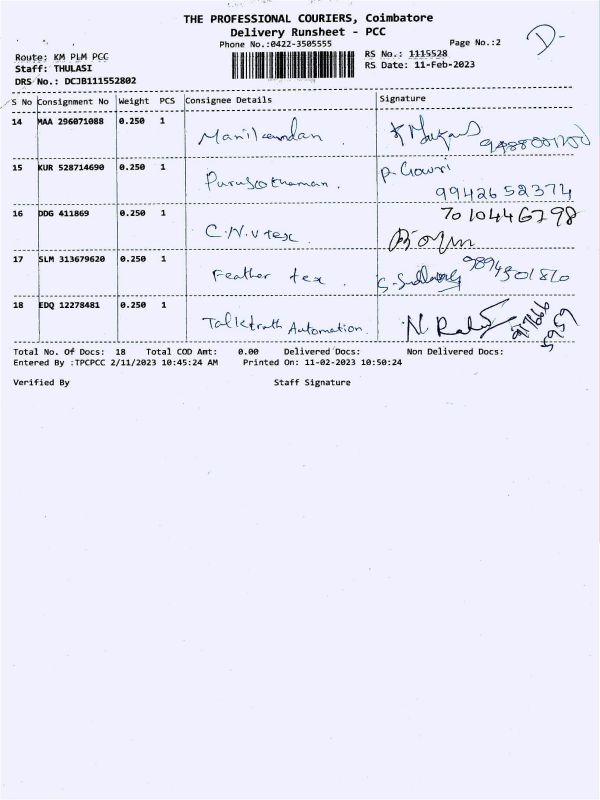 THE PROFESSIONAL COURIERS, Coimbatore
Delivery Runsheet - PCC
Phone No.:0422-3505555
Page No.:2
D-
Route: KM PLM PCC
RS No.: 1115528
Staff: THULASI
RS Date: 11-Feb-2023
DRS No.: DCJB111552802
S No Consignment No Weight PCS Consignee Details Signature
14 MAA 296071088 0.250 1 Manikandan
15 KUR 528714690 0.250 1 Purusothaman. P. Gowri
9942652374
16 DDG 411869 0.250 1 C.N.V tex. 7010446798
17 SLM 313679620 0.250 1 Feather tex. 9894501820
18 EDQ 12278481 0.250 1 Automation.
Total No. Of Docs: 18 Total COD Amt: 0.00 Delivered Docs: Non Delivered Docs:
Entered By :TPCPCC 2/11/2023 10:45:24 AM Printed On: 11-02-2023 10:50:24
Verified By Staff Signature